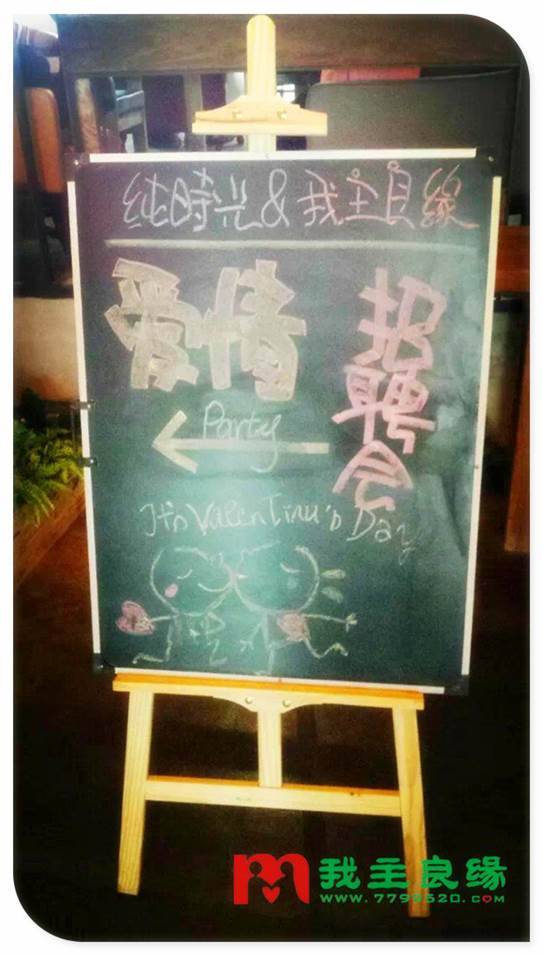 纯時光&我主良缘
爱情
招聘会
Party
It's Valentinu's Day
我主良缘
www.7799520.com